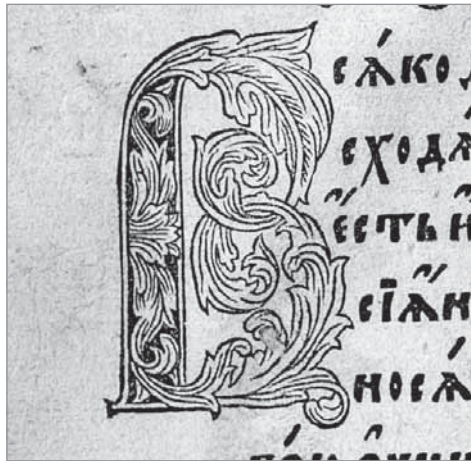 Всѧ́ко
сходѧ
є҆́сть и҆
сїѧ́н
носѧ